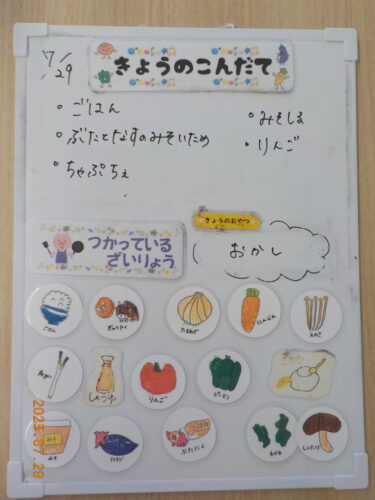 きょうのこんだて
7/29
・ごはん
・みそしる
・ぶたとなすのみそいため
・りんご
・ちゃぷちぇ
きょうのおやつ
おかし
つかっている
ざいりょう
ごはん
ぎゅうにく
たまねぎ
にんじん
えのき
ねぎ
しょうゆ
りんご
ピーマン
みそ
ナス
ぶたにく
わかめ
しいたけ
2025.07.29